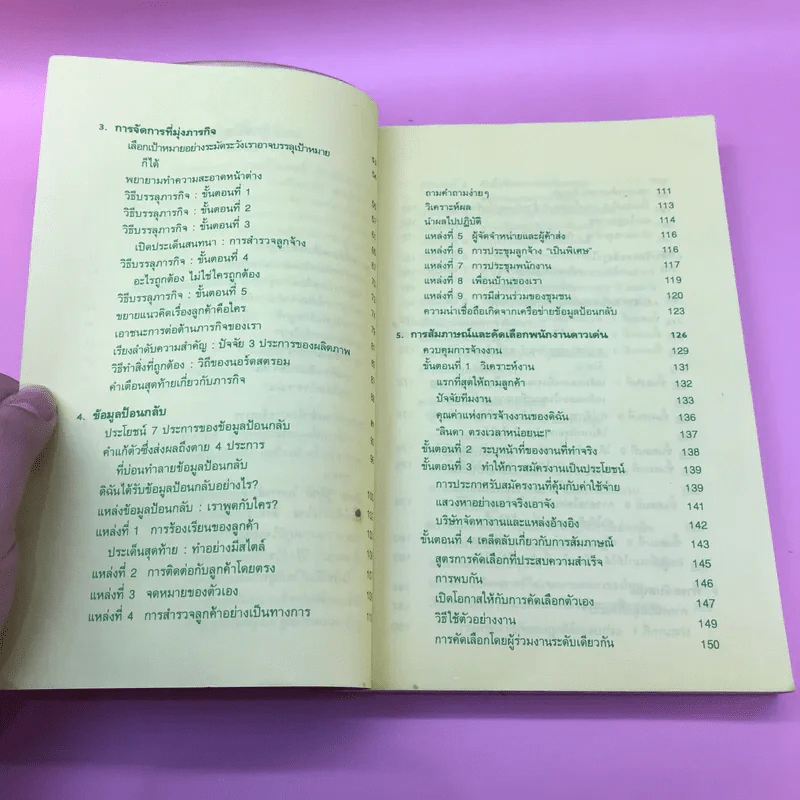 3. การจัดการที่มุ่งภารกิจ
เลือกเป้าหมายอย่างระมัดระวังเราอาจบรรลุเป้าหมาย
ก็ได้
พยายามทำความสะอาดหน้าต่าง
วิธีบรรลุภารกิจ : ขั้นตอนที่ 1
วิธีบรรลุภารกิจ : ขั้นตอนที่ 2
วิธีบรรลุภารกิจ : ขั้นตอนที่ 3
เปิดประเด็นสนทนา : การสำรวจลูกจ้าง
วิธีบรรลุภารกิจ : ขั้นตอนที่ 4
อะไรถูกต้อง ไม่ใช่ใครถูกต้อง
วิธีบรรลุภารกิจ : ขั้นตอนที่ 5
ขยายแนวคิดเรื่องลูกค้าคือใคร
เอาชนะการต่อต้านภารกิจของเรา
เรียงลำดับความสำคัญ : ปัจจัย 3 ประการของผลิตภาพ
วิธีทำสิ่งที่ถูกต้อง : วิถีของนอร์ดสตรอม
คำเตือนสุดท้ายเกี่ยวกับภารกิจ
4. ข้อมูลป้อนกลับ
ประโยชน์ 7 ประการของข้อมูลป้อนกลับ
คำแก้ตัวซึ่งส่งผลถึงตาย 4 ประการ
ที่บ่อนทำลายข้อมูลป้อนกลับ
ดิฉันได้รับข้อมูลป้อนกลับอย่างไร?
แหล่งข้อมูลป้อนกลับ : เราพูดกับใคร?
แหล่งที่ 1 การร้องเรียนของลูกค้า
ประเด็นสุดท้าย : ทำอย่างมีสไตล์
แหล่งที่ 2 การติดต่อกับลูกค้าโดยตรง
แหล่งที่ 3 จดหมายของตัวเอง
แหล่งที่ 4 การสำรวจลูกค้าอย่างเป็นทางการ
ถามคำถามง่ายๆ 111
วิเคราะห์ผล 113
นำผลไปปฏิบัติ 114
แหล่งที่ 5 ผู้จัดจำหน่ายและผู้ค้าส่ง 116
แหล่งที่ 6 การประชุมลูกจ้าง "เป็นพิเศษ" 116
แหล่งที่ 7 การประชุมพนักงาน 117
แหล่งที่ 8 เพื่อนบ้านของเรา 119
แหล่งที่ 9 การมีส่วนร่วมของชุมชน 120
ความน่าเชื่อถือเกิดจากเครือข่ายข้อมูลป้อนกลับ 123
5. การสัมภาษณ์และคัดเลือกพนักงานดาวเด่น 126
ควบคุมการจ้างงาน 129
ขั้นตอนที่ 1 วิเคราะห์งาน 131
แรกที่สุดให้ถามลูกค้า 132
ปัจจัยทีมงาน 133
คุณค่าแห่งการจ้างงานของดิฉัน 136
"ลินดา ตรงเวลาหน่อยนะ!" 137
ขั้นตอนที่ 2 ระบุหน้าที่ของงานที่ทำจริง 138
ขั้นตอนที่ 3 ทำให้การสมัครงานเป็นประโยชน์ 139
การประกาศรับสมัครงานที่คุ้มกับค่าใช้จ่าย 139
แสวงหาอย่างเอาจริงเอาจัง 141
บริษัทจัดหางานและแหล่งอ้างอิง 142
ขั้นตอนที่ 4 เคล็ดลับเกี่ยวกับการสัมภาษณ์ 143
สูตรการคัดเลือกที่ประสบความสำเร็จ 145
การพบกัน 146
เปิดโอกาสให้กับการคัดเลือกตัวเอง 147
วิธีใช้ตัวอย่างงาน 149
การคัดเลือกโดยผู้ร่วมงานระดับเดียวกัน 150